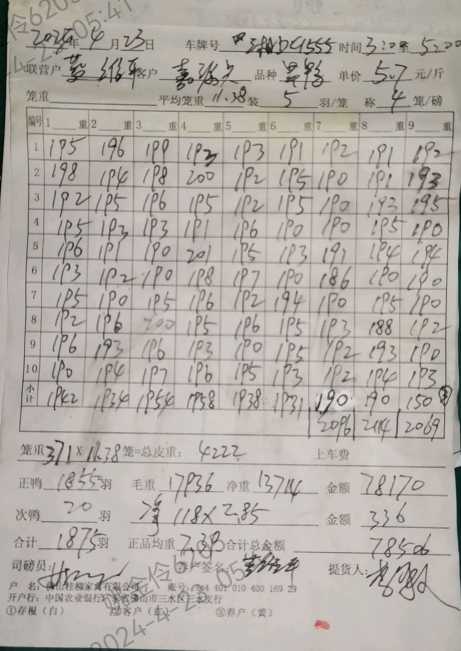 2024年4月23日 车牌号 时间3:00至5:00
联营户 客户 品种 单价5.7元/斤
笼重 平均笼重11.38 装5羽/笼 称4笼/磅
编号 1 重 2 重 3 重 4 重 5 重 6 重 7 重 8 重 9 重
1 195 196 199 193 193 191 192 191 192
2 198 194 198 200 192 195 190 191 193
3 192 195 196 195 192 195 190 193 195
4 195 193 193 191 196 190 190 195 190
5 196 191 190 201 195 193 191 194 194
6 193 192 190 198 197 190 186 190 190
7 195 190 195 196 192 194 190 195 190
8 192 196 200 195 196 195 193 188 192
9 196 193 196 193 190 195 192 193 190
10 190 194 197 196 195 193 192 194 193
小计 1942 1934 1954 1958 1938 1931 190 190 150
2096 2114 2069
笼重371×11.38笼=总皮重:4222 上车费
正鸭1855羽 毛重17936 净重13714 金额78170
次鸭20羽 118×2.85 金额336
合计1875羽 正品均重7.39 合计总金额78506
司磅员: 客户签名: 提货人:
户 名: 有限公司 账号:
开户行:中国农业银行 佛山市三水区三水支行
①存根(白) ②客户(红) ③养户(黄)
2024-4-2